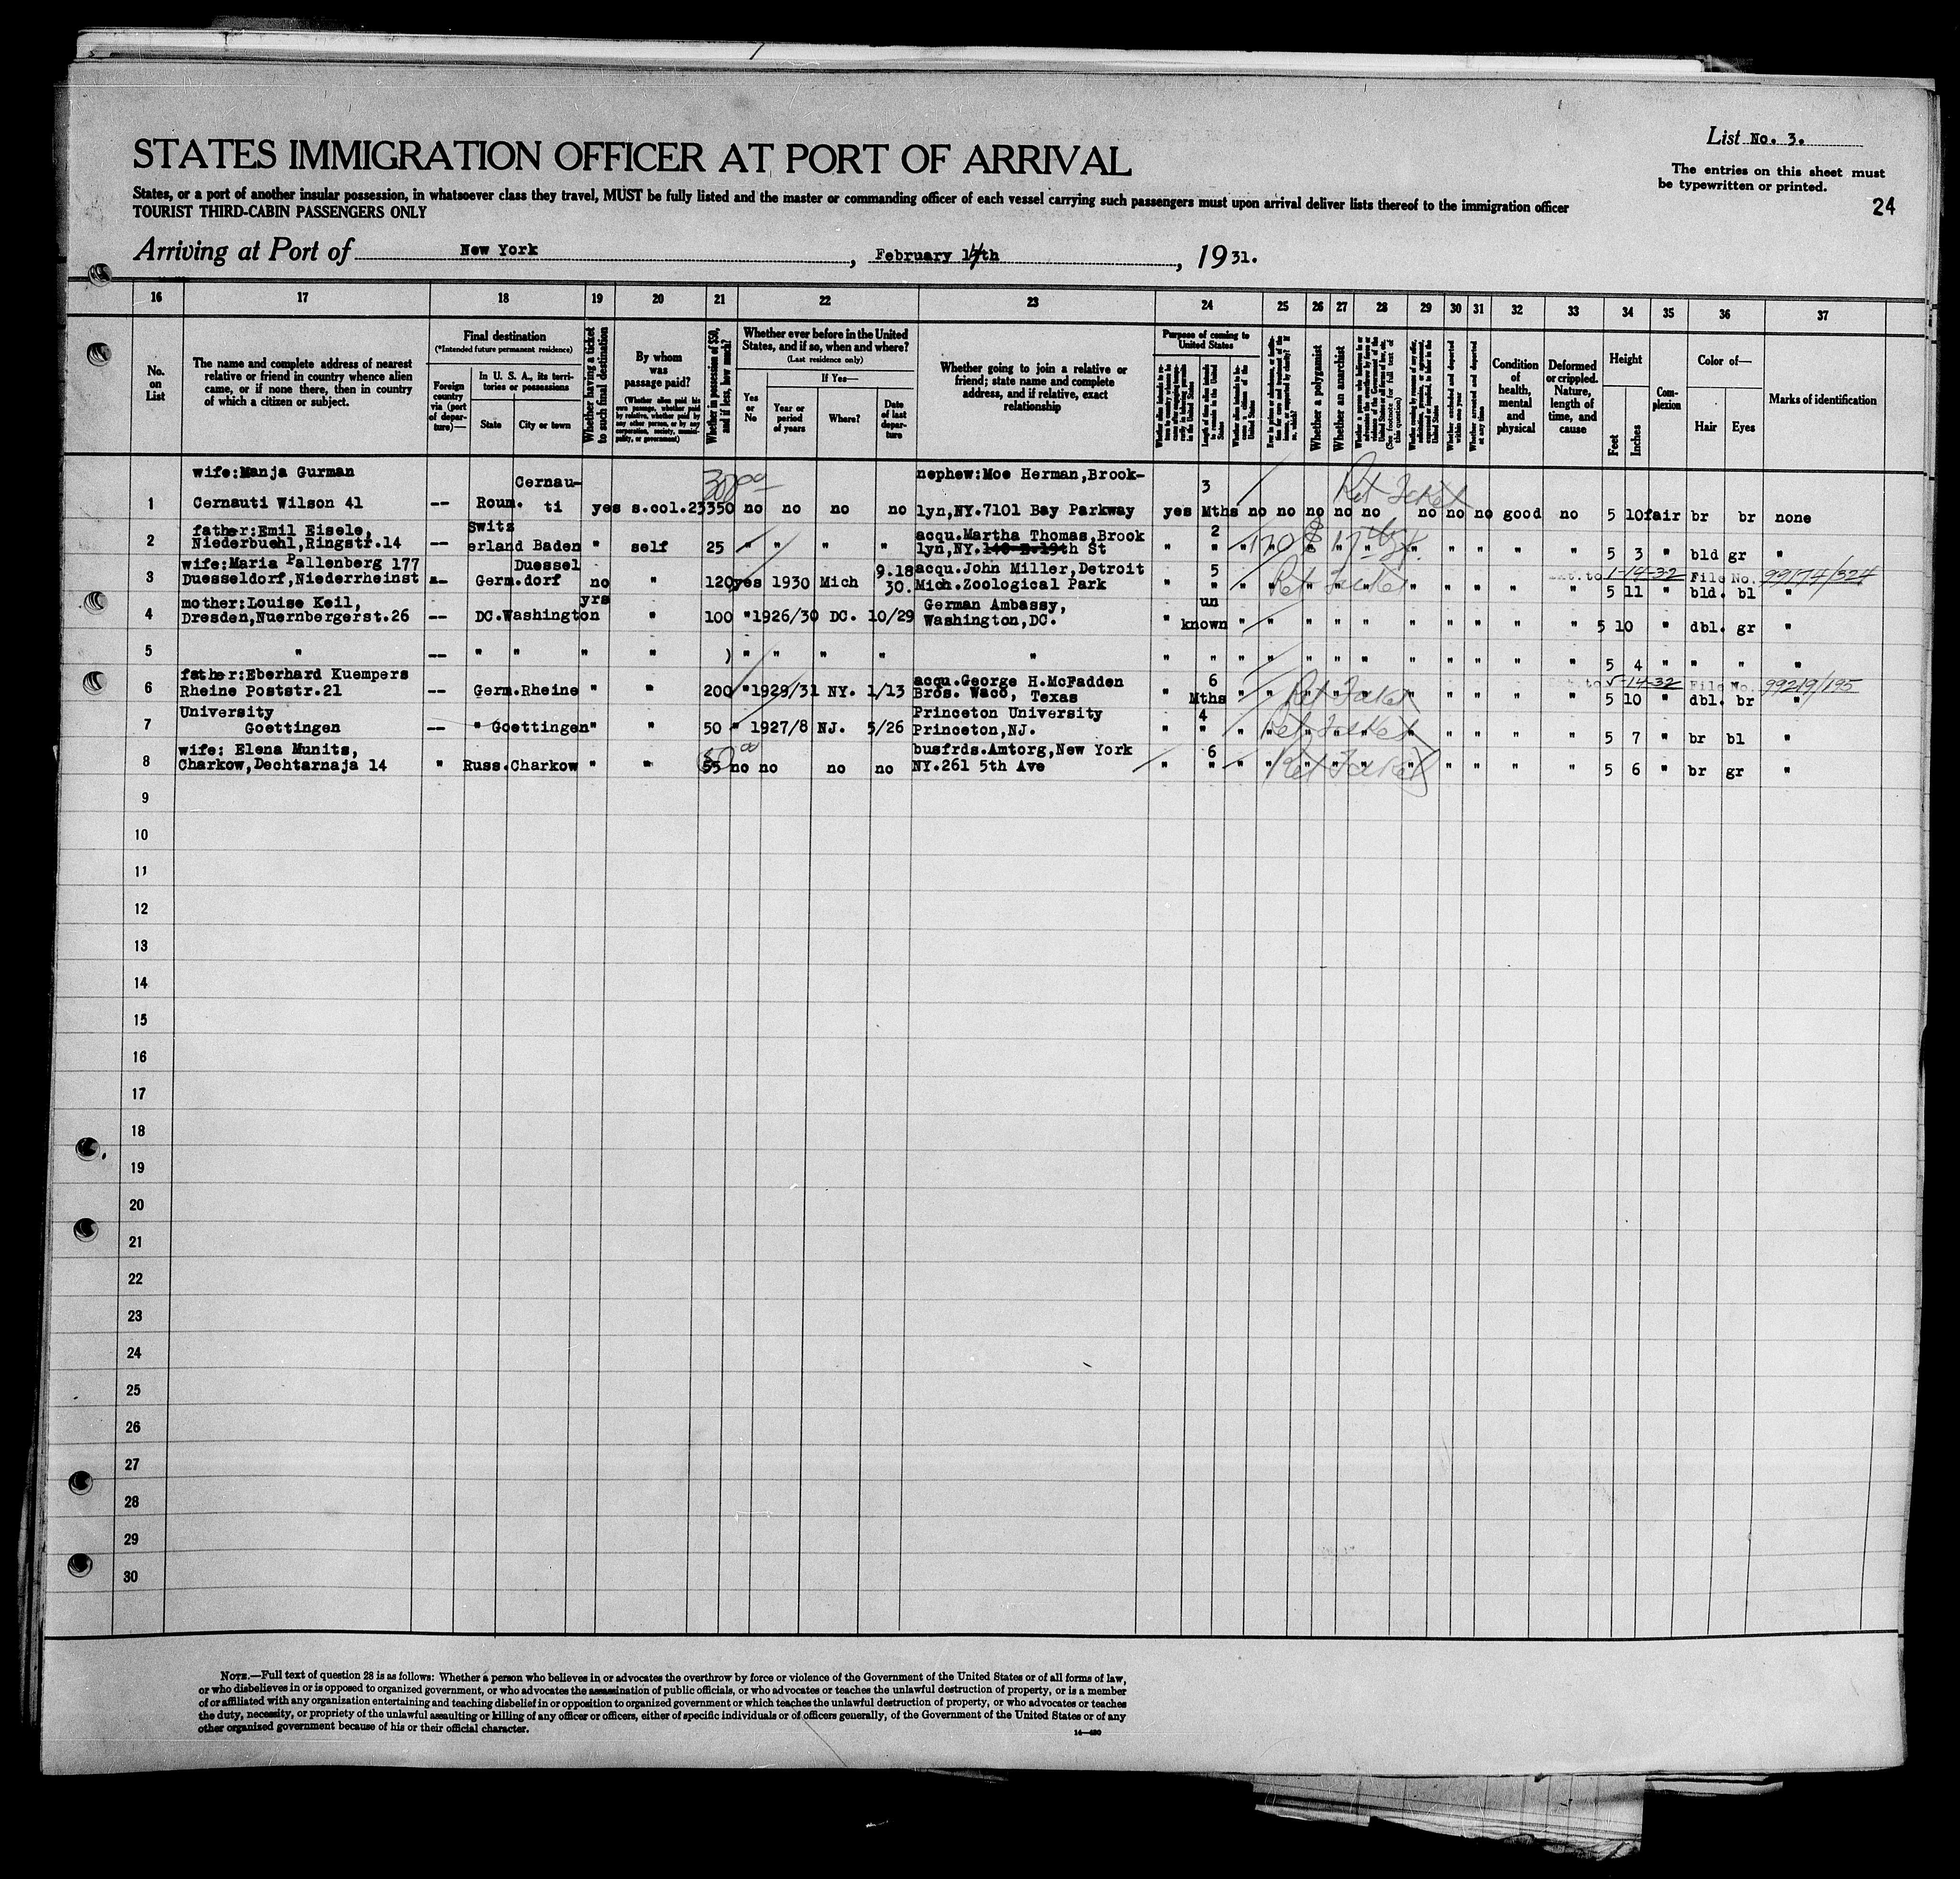 List No. 3.
STATES IMMIGRATION OFFICER AT PORT OF ARRIVAL
The entries on this sheet must
be typewritten or printed.
States, or a port of another insular possession, in whatsoever class they travel, MUST be fully listed and the master or commanding officer of each vessel carrying such passengers must upon arrival deliver lists thereof to the immigration officer
TOURIST THIRD-CABIN PASSENGERS ONLY
24
Arriving at Port of New York, February 14th, 1931.
16 17 18 19 20 21 22 23 24 25 26 27 28 29 30 31 32 33 34 35 36 37
No. on List
The name and complete address of nearest relative or friend in country whence alien came, or if none there, then in country of which a citizen or subject.
Final destination
(*Intended future permanent residence)
Foreign country via (port of departure)—
In U. S. A., its territories or possessions
State
City or town
Whether having a ticket to such final destination
By whom was passage paid?
(Whether alien paid his own passage, whether paid by relative, whether paid by any other person, or by any corporation, society, municipality, or government)
Whether in possession of $50, and if less, how much?
Whether ever before in the United States, and if so, when and where?
(Last residence only)
Yes or No
If Yes—
Year or period of years
Where?
Date of last departure
Whether going to join a relative or friend; state name and complete address, and if relative, exact relationship
Purpose of coming to United States
Whether a polygamist
Whether an anarchist
Condition of health, mental and physical
Deformed or crippled. Nature, length of time, and cause
Height
Feet
Inches
Complexion
Color of—
Hair
Eyes
Marks of identification
wife:Manja Gurman Cernau- 300 00 nephew:Moe Herman,Brook- 3 Ret Ticket
1 Cernauti Wilson 41 -- Roum. ti yes s.col.23350 no no no no lyn,NY.7101 Bay Parkway yes Mths no no no no no no no no good no 5 10 fair br br none
father:Emil Eisele, Switz acqu.Martha Thomas,Brook 2
2 Niederbuehl,Ringstr.14 -- erland Baden " self 25 " " " " lyn,NY.140 E.19th St " " " " " " " " 5 3 " bld gr "
wife:Maria Pallenberg 177 Duessel 9.18 acqu.John Miller,Detroit 5
3 Duesseldorf,Niederrheinst -- Germ.dorf no " 120 yes 1930 Mich 30. Mich.Zoological Park " " " Ret Ticket " " " " " 1-14-32 File No. 99174/324
5 11 " bld. bl "
mother:Louise Keil, yrs German Ambassy, un
4 Dresden,Nuernbergerst.26 -- DC.Washington " 100 "1926/30 DC. 10/29 Washington,DC. " known " " " " " " " " " " " 5 10 " dbl. gr "
5 " -- " " " " ) " " " " " " " " " " " " " " " " " " 5 4 " " " "
father:Eberhard Kuempers acqu.George H.McFadden 6
6 Rheine Poststr.21 -- Germ.Rheine " " 200 "1929/31 NY. 1/13 Bros. Waco, Texas " Mths " Ret Ticket " " " " " 5-14-32 File No. 99219/195
5 10 " dbl. br "
University Princeton University 4
7 Goettingen -- " Goettingen" " 50 " 1927/8 NJ. 5/26 Princeton,NJ. " " " Ret Ticket " " " " " 5 7 " br bl "
wife: Elena Munits, 60 00 busfrds.Amtorg,New York 6
8 Charkow,Dechtarnaja 14 " Russ.Charkow " " 55 no no no no NY.261 5th Ave " " " Ret Ticket " " " " " 5 6 " br gr "
9
10
11
12
13
14
15
16
17
18
19
20
21
22
23
24
25
26
27
28
29
30
NOTE.—Full text of question 28 is as follows: Whether a person who believes in or advocates the overthrow by force or violence of the Government of the United States or of all forms of law,
or who disbelieves in or is opposed to organized government, or who advocates the assassination of public officials, or who advocates or teaches the unlawful destruction of property, or is a member
of or affiliated with any organization entertaining and teaching disbelief in or opposition to organized government or which teaches the unlawful destruction of property, or who advocates or teaches
the duty, necessity, or propriety of the unlawful assaulting or killing of any officer or officers, either of specific individuals or of officers generally, of the Government of the United States or of any
other organized government because of his or their official character.
14—490